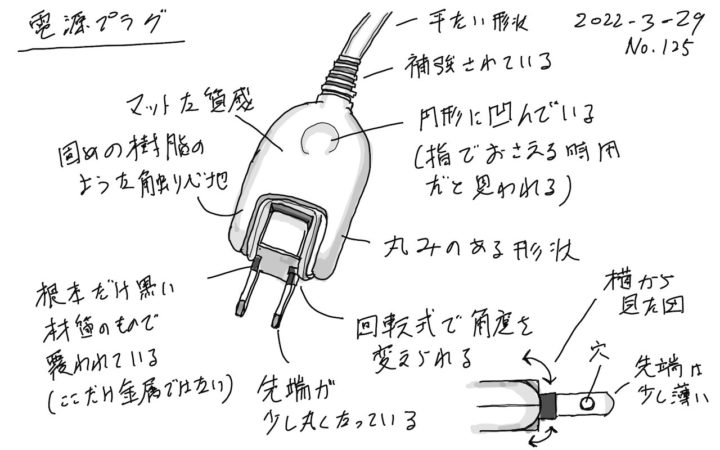 電源プラグ
平たい形状
2022-3-29
No.125
補強されている
マットな質感
円形に凹んでいる
(指でおさえる時用
だと思われる)
固めの樹脂の
ような触り心地
丸みのある形状
根本だけ黒い
材質のもので
覆われている
(ここだけ金属ではない)
回転式で角度を
変えられる
先端が
少し丸くなっている
横から
見た図
穴
先端は
少し薄い